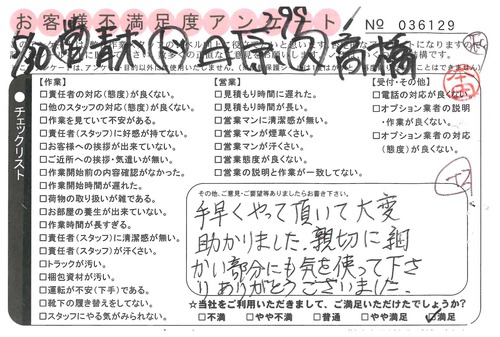 お客様不満足度アンケート
No 036129
299
高橋
チェックリスト
【作業】
□責任者の対応(態度)が良くない。
□他のスタッフの対応(態度)が良くない。
□作業を見ていて不安がある。
□責任者(スタッフ)に好感が持てない。
□お客様への挨拶が出来ていない。
□ご近所への挨拶・気遣いが無い。
□作業開始前の内容確認がなかった。
□作業開始時間が遅れた。
□荷物の取り扱いが雑である。
□お部屋の養生が出来ていない。
□作業時間が長すぎる。
□責任者(スタッフ)に清潔感が無い。
□責任者(スタッフ)が汗くさい。
□トラックが汚い。
□梱包資材が汚い。
□運転が不安(下手)である。
□靴下の履き替えをしてない。
□スタッフにやる気がみられない。
【営業】
□見積もり時間に遅れた。
□見積もり時間が長い。
□営業マンに清潔感が無い。
□営業マンが煙草くさい。
□営業マンが汗くさい。
□営業態度が良くない。
□営業の説明と作業が違ってない。
【受付・その他】
□電話の対応が良くない。
□オプション業者の説明
・作業が良くない。
□オプション業者の対応
(態度)が良くない。
その他、ご意見・ご要望等ありましたらお書き下さい。
手早くやって頂いて大変
助かりました。親切に細
かい部分にも気を使って下さ
りありがとうございました。
☆当社をご利用いただきまして、ご満足いただけたでしょうか?
□不満 □やや不満 □普通 □やや満足 ☑満足